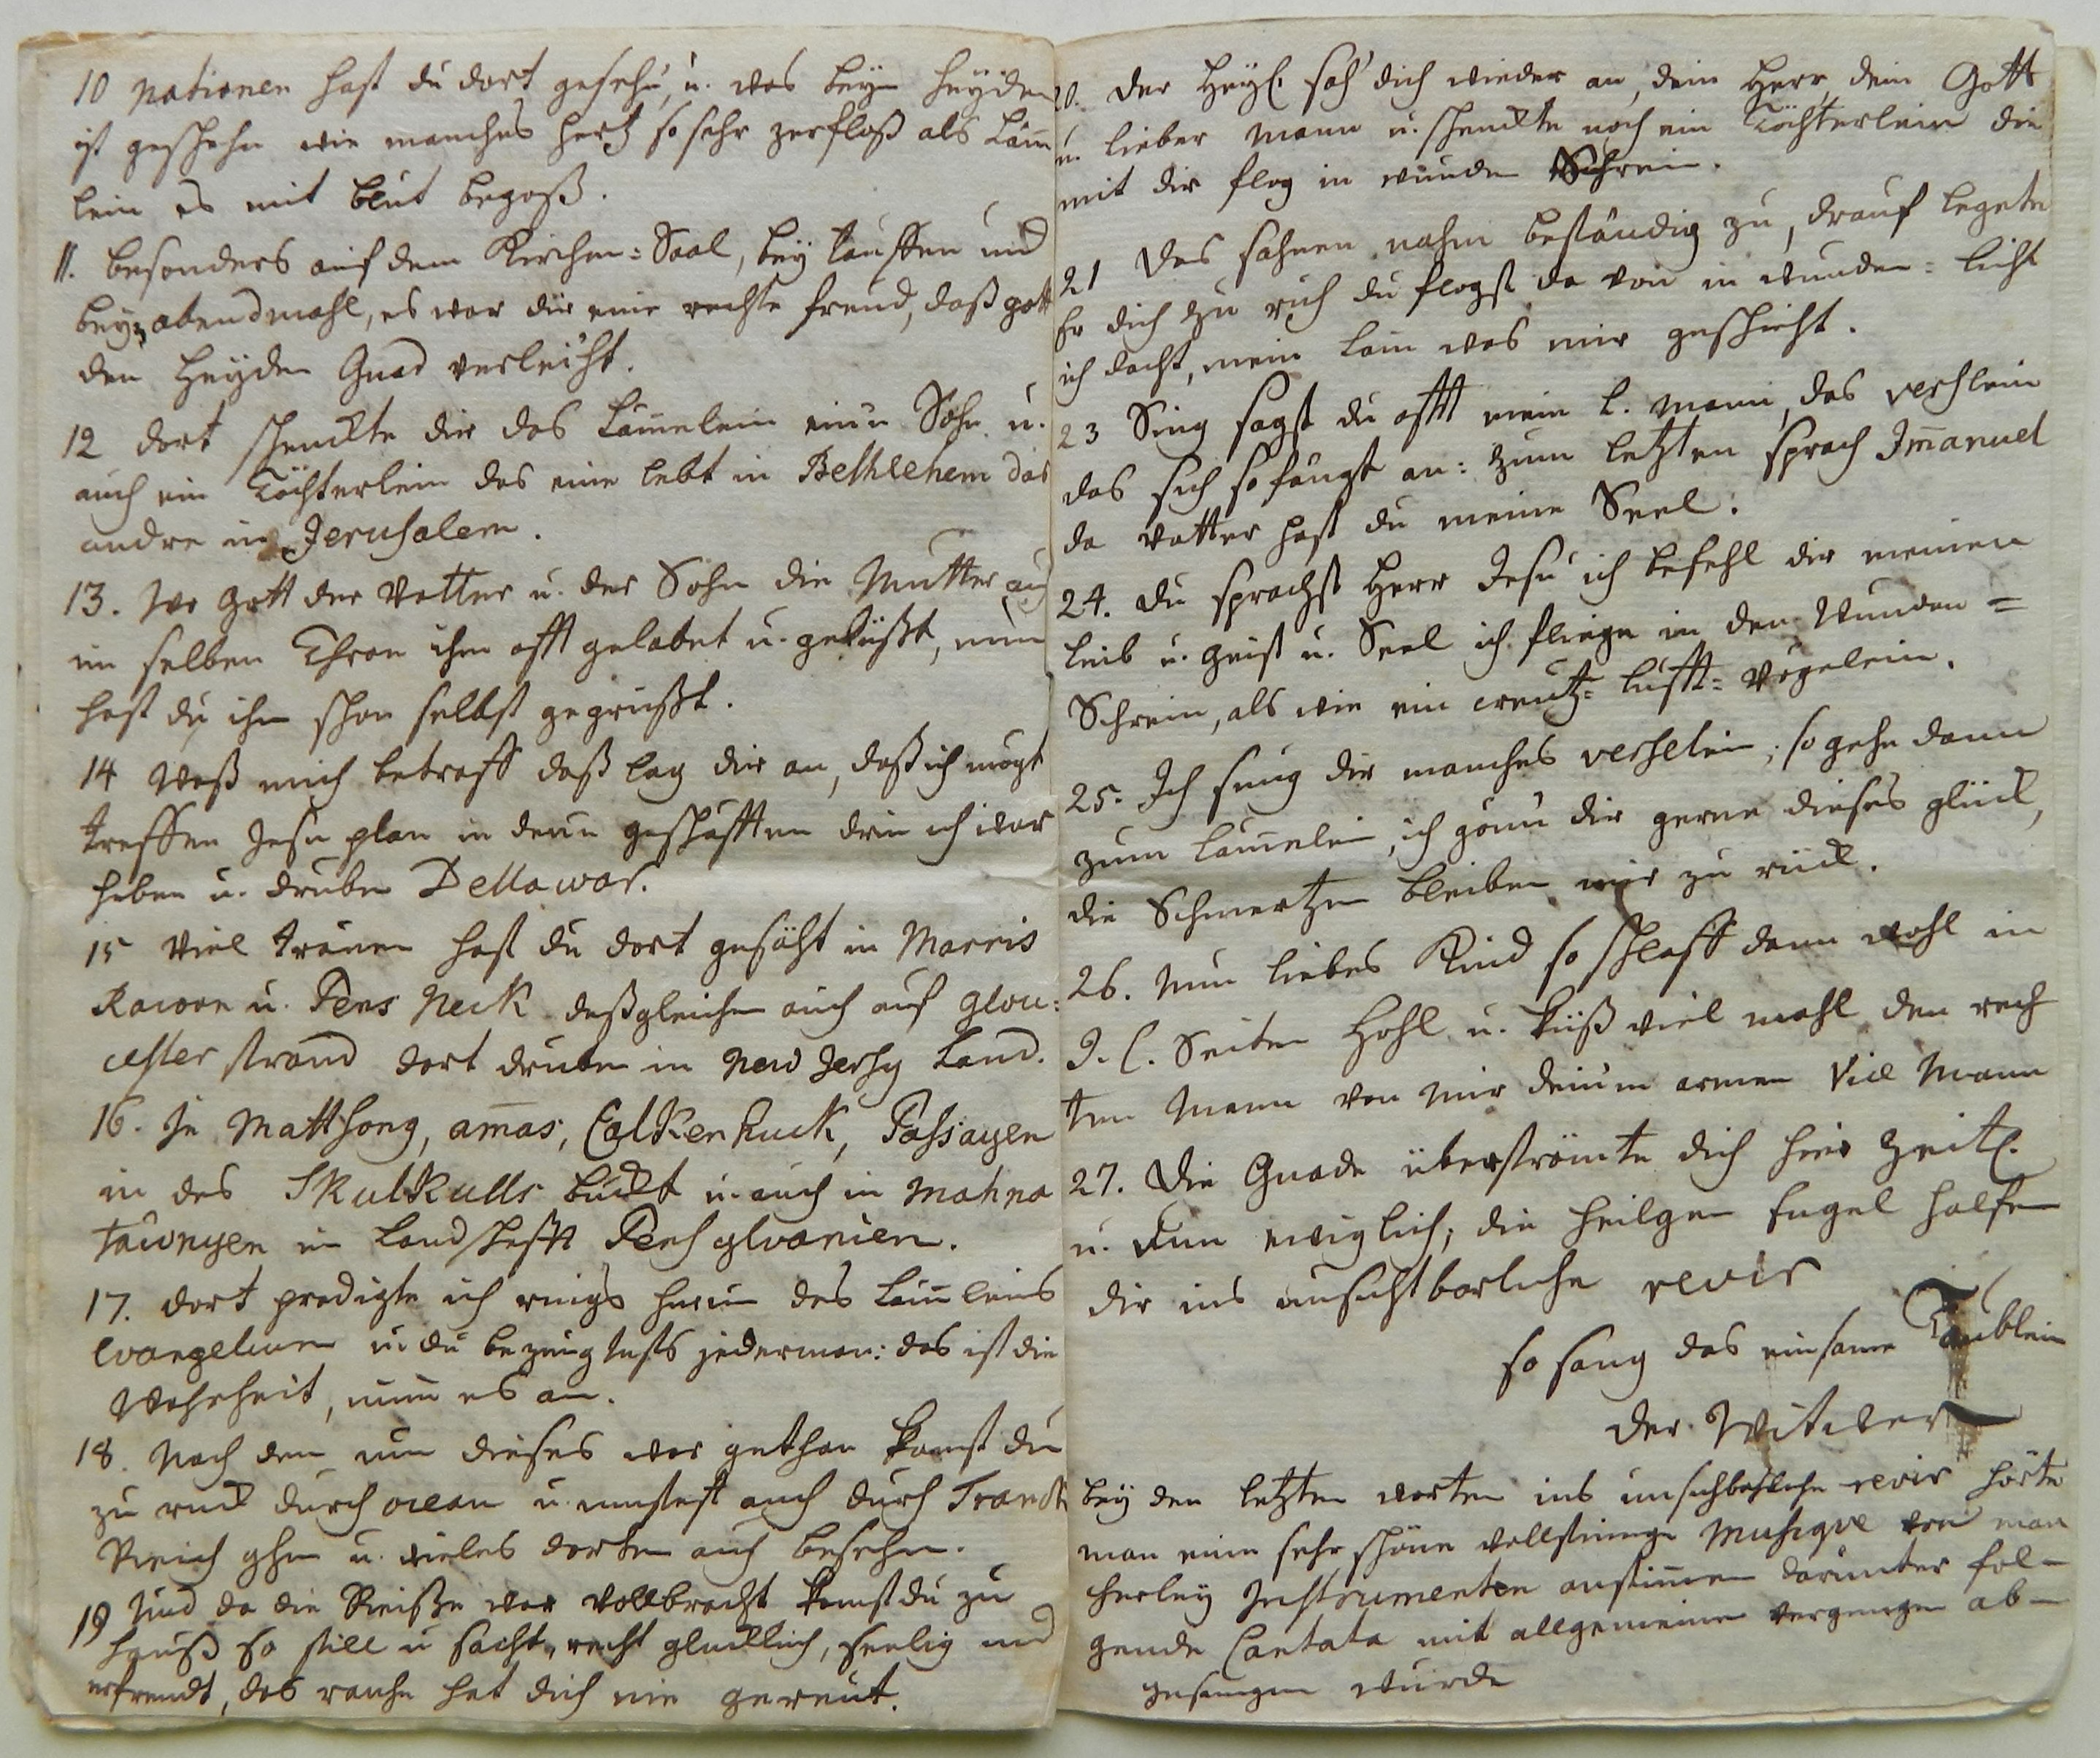 10 Nationen hast du dort gesehn, u. was beym Heyden
ist geschehn wie manches hertz so sehr zerfloß als Läm̄
lein es mit blut begoß.
11. besonders auf dem Kirchen=Saal, bey tauffen und
beym abendmahl, es war dir eine rechte freud, daß gott
den Heyden Gnad verleiht.
12 dort schenckte dir das Läm̄elein einen Sohn u.
auch ein Töchterlein das eine lebt in Bethlehem das
andre in Jerusalem.
13. Wo Gott der Vatter u. der Sohn die Mutter auf
im selben Thron ihn offt gelobet u. geküßt, nun
hast du ihn schon selbst gegrüßt.
14 Waß mich betraff daß lag dir an, daß ich mögt
treffen Jesu plan in denen geschäfften drin ich war
hüben u. drüben Dellawar.
15 Viel tränen hast du dort gesäht in Marris
Racoon u. Pens Neck deßgleichen auch auf Glou=
cester strand dort drüben in New Jersy Land.
16. In Mattsong, am̄as, Calkenhuck, Passayen
in des Skulkulls buckt u. auch in Mahna
tawnyen in Landschafft Pensylvanien.
17. dort predigte ich rings herum des Läm̄leins
Evangelium u. du bezeugtests jederman: das ist die
Wahrheit, nim̄ es an.
18. Nach dem nun dieses war gethan kamst du
zu rück durch ocean u. mustest auch durch Franck
Reich gehn u. vieles dorten auch besehn.
19 Und da die Reiße war vollbracht kamst du zu
Hauß so still u sacht, recht glücklich, seelig und
erfreudt, das rauhe hat dich nie gereut.
20. der Heyl. sah dich wieder an, dein Herr, dein Gott
u. lieber Mann u. schenckte noch ein Töchterlein die
mit dir flog in wunden Schrein.
21 Das sehnen nahm beständig zu, drauf legete
Er dich zu ruh du flogst da von in wunden=licht
ich dacht, mein Lam̄ was mir geschicht.
23 Sing sagst du offt mein l. Mann, das verslein
das sich so fängt an: zum letzten sprach Im̄anuel
da Vatter hast du meine Seel:
24. du sprachst Herr Jesu ich befehl dir meinen
Leib u. Geist u. Seel ich fliege in den Wunden=
Schrein, als wie ein creutz=lufft=vögelein.
25. Ich sung dir manches verslein; so gehe dann
zum Läm̄elein, ich gönn dir gerne dieses glück,
die Schmertzen bleiben mir zu rück.
26. Nun liebes Kind so schlaff dann wohl in
J. C. Seiten Hohl u. küß viel mahl den rech
ten Mann von mir deinem armen Vice Mann
27. Die Gnade überströmte dich hier zeitl.
u. nun ewiglich; die heilgen Engel holfen
dir ins unsichtbarliche revir
so sang das einsame Täublein
der Witwer
bey den letzten worten ins unsichbahrliche revir hörte
man eine sehr schöne vollstimmige Musique von man
cherley Instrumenten anstim̄en darunter fol-
gende Cantata mit allgemeinen vergnügen ab-
gesungen wurde